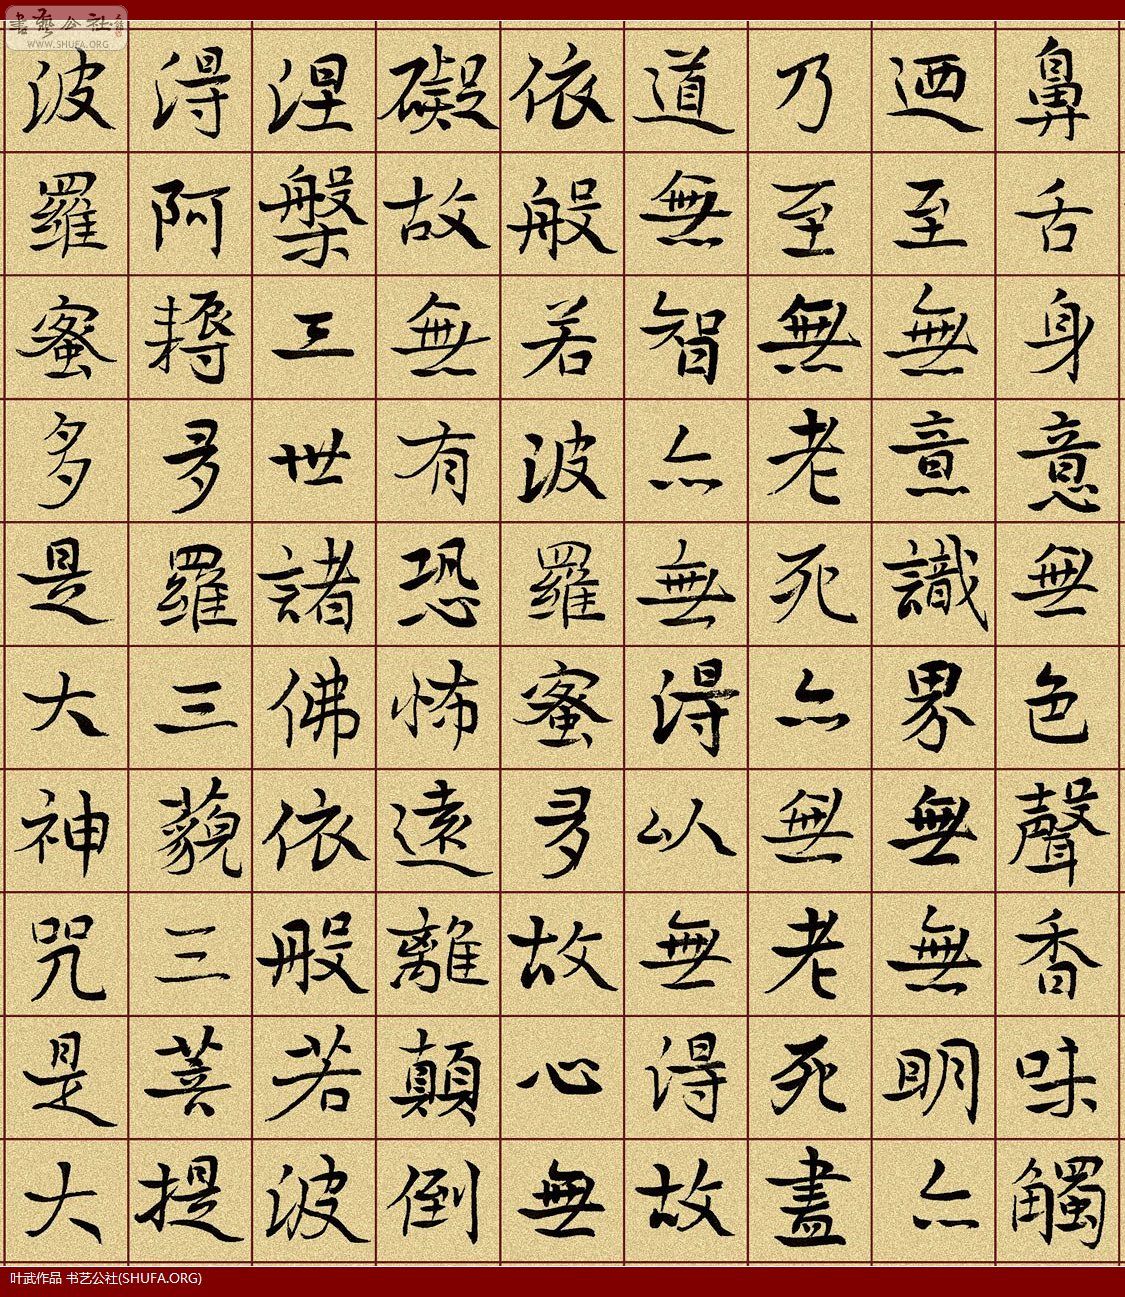 鼻舌身意無色聲香味觸
迺至無意識界無無明亦
乃至無老死亦無老死盡
道無智亦無得以無得故
依般若波羅蜜多故心無
礙故無有恐怖遠離顛倒
涅槃三世諸佛依般若波
得阿耨多羅三藐三菩提
波羅蜜多是大神咒是大
書藝公社
WWW.SHUFA.ORG
叶武作品 书艺公社(SHUFA.ORG)